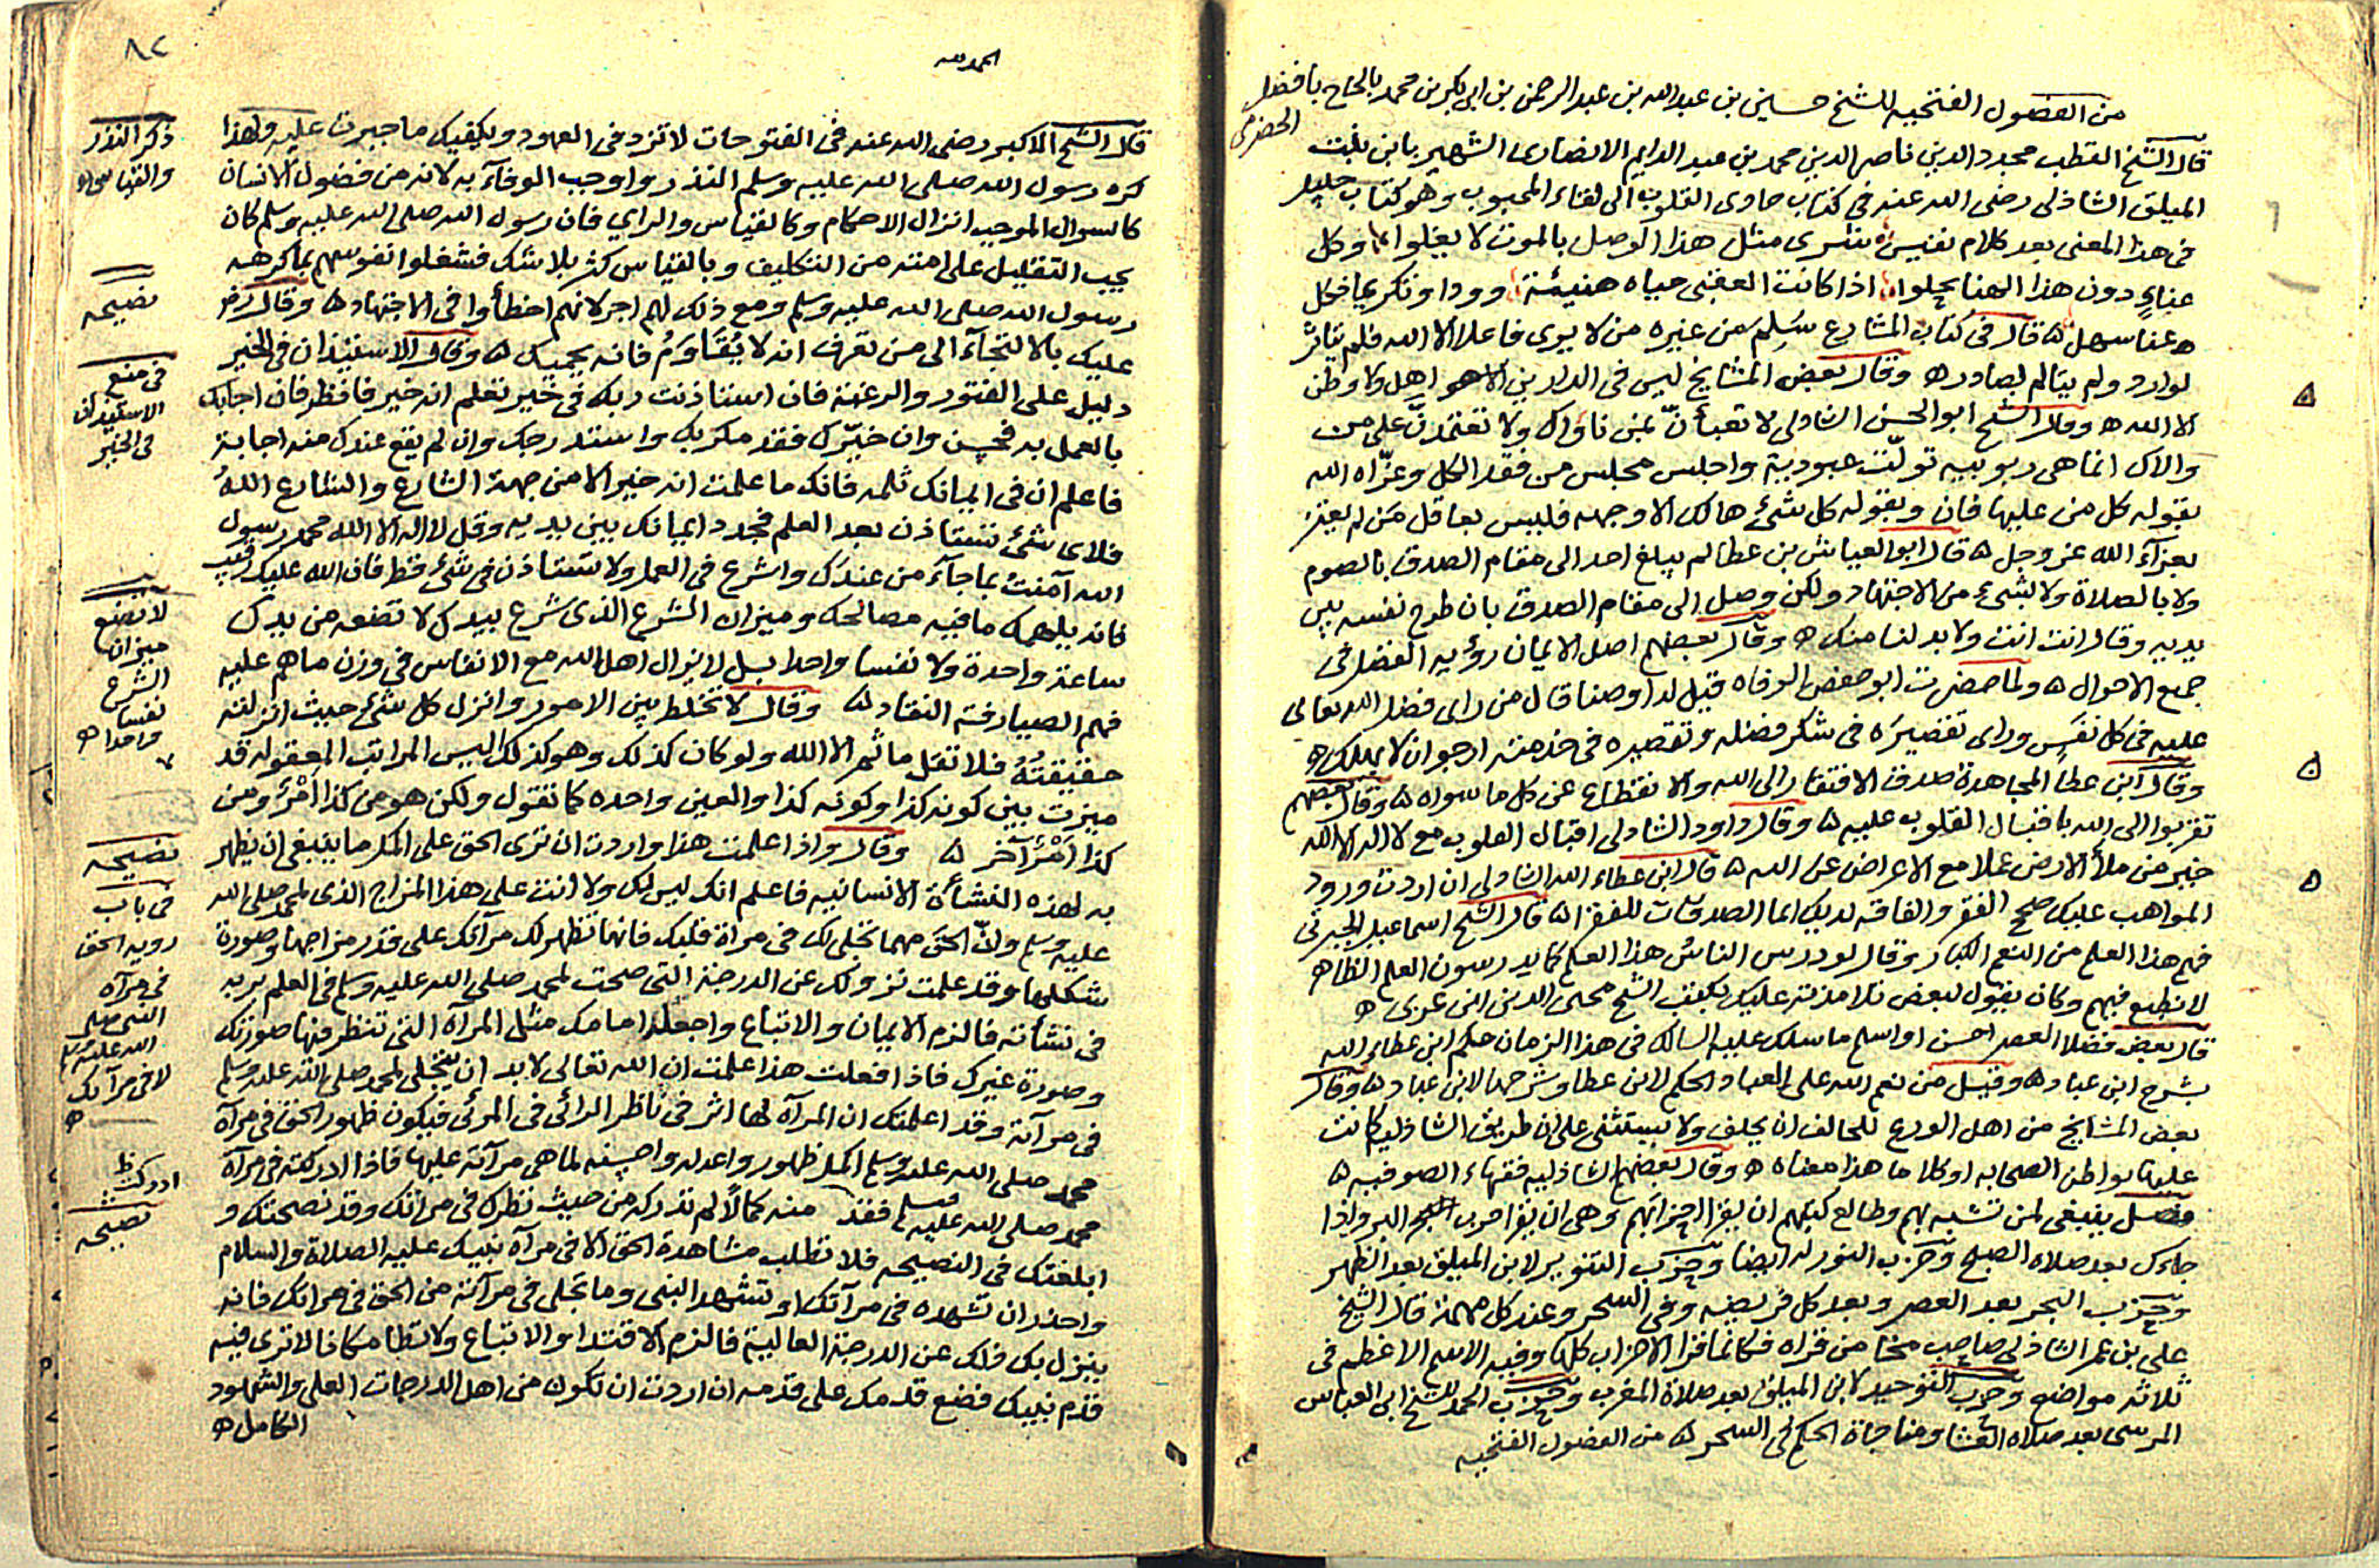 من الفصول الفتحيه للشيخ حسين بن عبد الله بن عبد الرحمن بن ابي بكر بن محمد بالحاج بافضل
الحضرمي
قال الشيخ القطب مجدد الدين ناصر الدين محمد بن عبد الدايم الانصارى الشهير بابن بنت
الميلق الشاذلى رضى الله عنه فى كتاب حادى القلوب الى لقاء المحبوب وهو كتاب جليل
فى هذا المعنى بعد كلام نفيس شرى مثل هذا الوصل بالموت لا يغلوا وكل
عناءٍ دون هذا الهنا يحلوا اذا كانت العقبى حياه هنيئة وودا وتكريما فكل
عنا سهل ه قال فى كتاب المشارع سَلِمَ من غيره من لا يرى فاعلا الا الله فلم يتاثر
لوارد ولم يتالم لصادر ه وقال بعض المشايخ ليس فى الدارين الا هو اهل ولا وطن
الا الله ه وقال الشيخ ابو الحسن الشاذلى لا تعبأنّ بمن ناواك ولا تعتمدنّ على من
والاك انما هى ربوبيه تولّت عبودية واجلس مجلس من فقد الكل وعزّاه الله
بقوله كل من عليها فان وبقوله كل شئ هالك الا وجهه فليس بعاقل من لم يعتز
بعزآء الله عز وجل ه قال ابو العباس بن عطا لم يبلغ احد الى مقام الصدق بالصوم
ولا بالصلاة ولا بشئ من الاجتهاد ولكن وصل الى مقام الصدق بان طرح نفسه بين
يديه وقال انت انت ولا بد لنا منك ه وقال بعضهم اصل الايمان رؤيه الفضل فى
جميع الاحوال ه ولما حضرت ابو حفص الوفاه قيل له اوصنا قال من راى فضل الله تعالى
عليه فى كل نفَس وراى تقصيرَه فى شكر فضله وتقصيره فى خدمته ارجو ان لا يهلك ه
وقال ابن عطا المجاهدة صدق الافتقار الى الله والانقطاع عن كل ما سواه ه وقال بعضهم
تقربوا الى الله باقبال القلوب عليه ه وقال داود الشاذلى اقبال القلوب مع لا اله الا الله
خير من ملأ الارض عملا مع الاعراض عن الله ه قال ابن عطاء الله الشاذلى ان اردت ورود
المواهب عليك صحح الفقر والفاقه لديك انما الصدقات للفقرا ه قال الشيخ اسماعيل الجبرتى
فهم هذا العلم من النعم الكبار وقال لو درس الناس هذا العلم كما يدرسون العلم الظاهر
لانطبع فيهم وكان يقول لبعض تلامذته عليك بكتب الشيخ محى الدين ابن عربى ه
قال بعض فضلا العصر احسن او اسلم ما سلك عليه السالك فى هذا الزمان حكم ابن عطاء الله
بشرح ابن عباد ه وقيل من نعم الله على العباد الحكم لابن عطا وشرحها لابن عباد ه وقال
بعض المشايخ من اهل الورع للحالف ان يحلف ولا يستثنى على ان طريق الشاذليه كانت
عليها بواطن الصحابه او كلاما هذا معناه ه وقال بعضهم الشاذليه فقهاء الصوفيه ه
فصل ينبغى لمن تشبه بهم وطالع كتبهم ان يقرا احزابهم وهى ان يقرا حزب البر واذا
جاءك بعد صلاه الصبح وحزب النور له ايضا وحِزب التنوير لابن الميلق بعد الظهر
وحزب البحر بعد العصر وبعد كل فريضه وفى السحر وعند كل مهمة قال الشيخ
على بن عمر الشاذلى صاحب مخا من قراه فكانما قرا الاحزاب كلها وفيه الاسم الاعظم فى
ثلاثه مواضع وحزب التوحيد لابن الميلق بعد صلاة المغرب وحزب الحمد للشيخ ابى العباس
المرسى بعد صلاه العشا ومناجاة الحكم فى السحر ه من الفصول الفتحيه
٨٢
الحمد لله
قال الشيخ الاكبر رضى الله عنه فى الفتوحات لا تزد فى العهود ويكفيك ما جبرت عليه ولهذا
كره رسول الله صلى الله عليه وسلم النذر واوجب الوفآء به لانه من فضول الانسان
كالسوال الموجب انزال الاحكام وكالقياس والراي فان رسول الله صلى الله عليه وسلم كان
يحب التقليل على امته من التكليف وبالقياس كثر بلا شك فشغلوا نفوسهم بما كرهه
رسول الله صلى الله عليه وسلم ومع ذلك لهم اجر لانهم اخطأوا فى الاجتهاد ه وقال رضى
عليك بالالتجآء الى من تعرف انه لا يُقَاوَمُ فانه يحميك ه وقال الاستيذان فى الخير
دليل على الفتور والرغبة فان استاذنت ربك فى خير تعلم انه خير فانظر فان اجابك
بالعمل به فحسن وان خيّرك فقد مكر بك واستدرجك وان لم يقع عندك منه اجابة
فاعلم ان فى ايمانك ثلمه فانك ما علمت انه خير الا من جهة الشارع والشارع اللهُ
فلاى شئ تستاذن بعد العلم فجدد ايمانك بين يديه وقل لا اله الا الله محمد رسول
الله آمنتُ بما جآء من عندك واشرع فى العمل ولا تستاذن فى شئ قط فان الله عليك رقيب
فانه يلهمك ما فيه مصالحك وميزان الشرع الذى شرع بيدك لا تضعه من يدك
ساعة واحدة ولا نفسا واحدا بل لا يزال اهل الله مع الانفاس فى وزن ما هم عليه
فهم الصيارفة النقاد ه وقال لا تخلط بين الامور وانزل كل شئ حيث انزلته
حقيقتُهُ فلا تقل ما ثم الا الله ولو كان كذلك وهو كذلك اليس المراتب المعقوله قد
ميزت بين كونه كذا وكونه كذا والعين واحده كما تقول ولكن هو من كذا اَمْرٌ ومن
كذا اَمْرٌ آخر ه وقال واذا علمت هذا واردت ان ترى الحق على اكمل ما ينبغى ان يظهر
به لهذه النشأة الانسانيه فاعلم انك ليس لك ولا انت على هذا المزاج الذى لمحمد صلى الله
عليه وسلم وانّ الحق مهما تجلى لك فى مراة قلبك فانما تظهر لك مرآتك على قدر مزاجها وصورة
شكلها وقد علمت نزولك عن الدرجة التى صحت لمحمد صلى الله عليه وسلم فى العلم بربه
فى نشأته فالزم الايمان والاتباع واجعله امامك مثل المرآة التى تنظر فيها صورتك
وصورة غيرك فاذا فعلت هذا علمت ان الله تعالى لا بد ان يتجلى لمحمد صلى الله عليه وسلم
فى مرآته وقد اعلمتك ان المرآة لها اثر فى ناظر الرائى فى المرئى فيكون ظهور الحق فى مرآة
محمد صلى الله عليه وسلم اكمل ظهور واعدله واحسنه لما هى مرآته عليها فاذا ادركته فى مرآة
محمد صلى الله عليه وسلم فقد منه كمالًا لم تدركه من حيث نظرك فى مراتك وقد نصحتك و
ابلغتك فى النصيحه فلا تطلب مشاهدة الحق الا فى مرآة نبيك عليه الصلاة والسلام
واحذر ان تشهده فى مرآتك او تشهد النبى وما تجلى فى مرآته من الحق فى مراتك فانه
ينزل بك ذلك عن الدرجة العالية فالزم الاقتدا والاتباع ولا تطا مكانا لا ترى فيه
قدم نبيك فضع قدمك على قدمه ان اردت ان تكون من اهل الدرجات العلى والشهود
الكامل ه
ذكر النذر
والقياس
نصيحه
فى منع
الاستيذان
فى الخير
لا تضع
ميزان
الشرع
نفسا
واحدا ه
نصيحه
فى باب
رويه الحق
فى مرآة
النبى صلى
الله عليه وسلم
لا فى مرآتك
ه
ادركت ظ
نصيحه